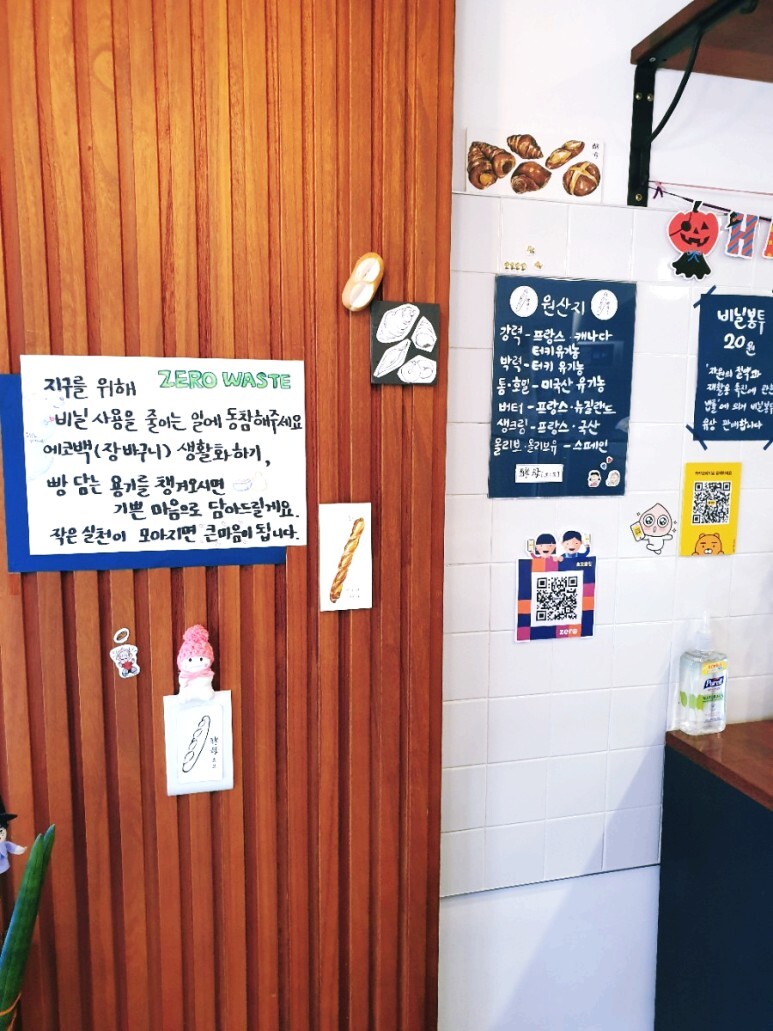 지구를 위해 ZERO WASTE
비닐 사용을 줄이는 일에 동참해주세요
에코백(장바구니) 생활화하기,
빵 담는 용기를 챙겨오시면
기쁜 마음으로 담아드릴게요.
작은 실천이 모아지면 큰 미음이 됩니다.
원산지
강력-프랑스·캐나다
터키유기농
박력-터키 유기농
통·호밀-미국산 유기농
버터-프랑스·뉴질랜드
생크림-프랑스·국산
올리브·올리브유-스페인
비닐봉투
20원
'자원의 절약과
재활용 촉진에 관한
법률'에 의거 비닐봉투
유상 판매합니다
zero
Purell
H